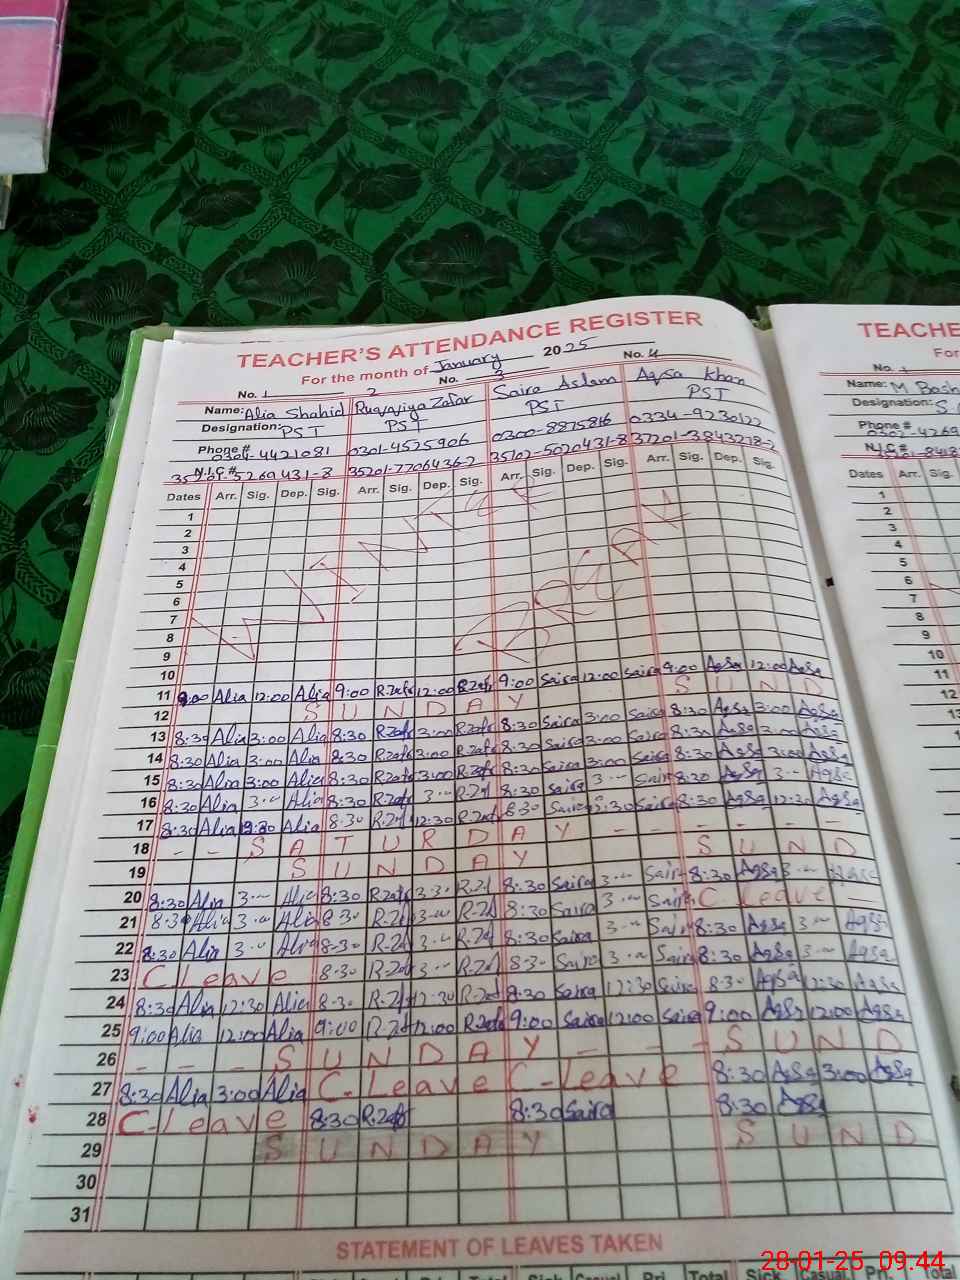 TEACHER'S ATTENDANCE REGISTER
For the month of January 2025
No. 1 2 No. 3 No. 4
Name: Alia Shahid Ruqayiya Zafar Saira Aslam Aqsa Khan
Designation: PST PST PST PST
Phone # 0304-4421081 0301-4525906 0300-8875816 0334-9230122
N.I.C # 35102-5020431-8 37201-3843278-2
Dates Arr. Sig. Dep. Sig. Arr. Sig. Dep. Sig. Arr. Sig. Dep. Sig. Arr. Sig. Dep. Sig.
1
2
3
4
5
6
7
8
9
WINTER BREAK
10
11 9:00 Alia 12:00 Alia 9:00 R.Zafr 12:00 R.Zafr 9:00 Saira 12:00 Saira 9:00 AqSa 12:00 AqSa
12 SUNDAY SUND
13 8:30 Alia 3:00 Alia 8:30 R.Zafr 3:00 R.Zafr 8:30 Saira 3:00 Saira 8:30 AqSa 3:00 AqSa
14 8:30 Alia 3:00 Alia 8:30 R.Zafr 3:00 R.Zafr 8:30 Saira 3:00 Saira 8:30 AqSa 3:00 AqSa
15 8:30 Alia 3:00 Alia 8:30 R.Zafr 3:00 R.Zafr 8:30 Saira 3:00 Saira 8:30 AqSa 3:00 AqSa
16 8:30 Alia 3:00 Alia 8:30 R.Zafr 3:00 R.Zf 8:30 Saira 3:00 Saira 8:30 AqSa 3:00 AqSa
17 8:30 Alia 12:30 Alia 8:30 R.Zf 12:30 R.Zaf 8:30 Saira 12:30 Saira 8:30 AqSa 12:30 AqSa
18 - - SATURDAY - - - - - -
19 SUNDAY SUND
20 8:30 Alia 3:00 Alia 8:30 R.Zafr 3:00 R.Zf 8:30 Saira 3:00 Saira 8:30 AqSa 3:00 AqSa
21 8:30 Alia 3:00 Alia 8:30 R.Zf 3:00 R.Zf 8:30 Saira 3:00 Saira C. Leave -
22 8:30 Alia 3:00 Alia 8:30 R.Zf 3:00 R.Zf 8:30 Saira 3:00 Saira 8:30 AqSa 3:00 AqSa
23 C Leave 8:30 R.Zaf 3:00 R.Zf 8:30 Saira 3:00 Saira 8:30 AqSa 3:00 AqSa
24 8:30 Alia 12:30 Alia 8:30 R.Zf 12:30 R.Zaf 8:30 Saira 12:30 Saira 8:30 AqSa 12:30 AqSa
25 9:00 Alia 12:00 Alia 9:00 R.Zf 12:00 R.Zafr 9:00 Saira 12:00 Saira 9:00 AqSa 12:00 AqSa
26 - - - SUNDAY - - - SUND
27 8:30 Alia 3:00 Alia C-Leave C-Leave 8:30 AqSa 3:00 AqSa
28 C-Leave 8:30 R.Zafr 8:30 Saira 8:30 AqSa
29 SUNDAY SUND
30
31
STATEMENT OF LEAVES TAKEN
Total Sick Casual Pri. Total Sick Casual Total
TEACHE
For
No. 1
Name: M Bash
Designation: S
Phone # 0302-4269
N.I.C #
Dates Arr. Sig.
1
2
3
4
5
6
7
8
9
10
11
12
13
14
15
16
17
28-01-25 09:44